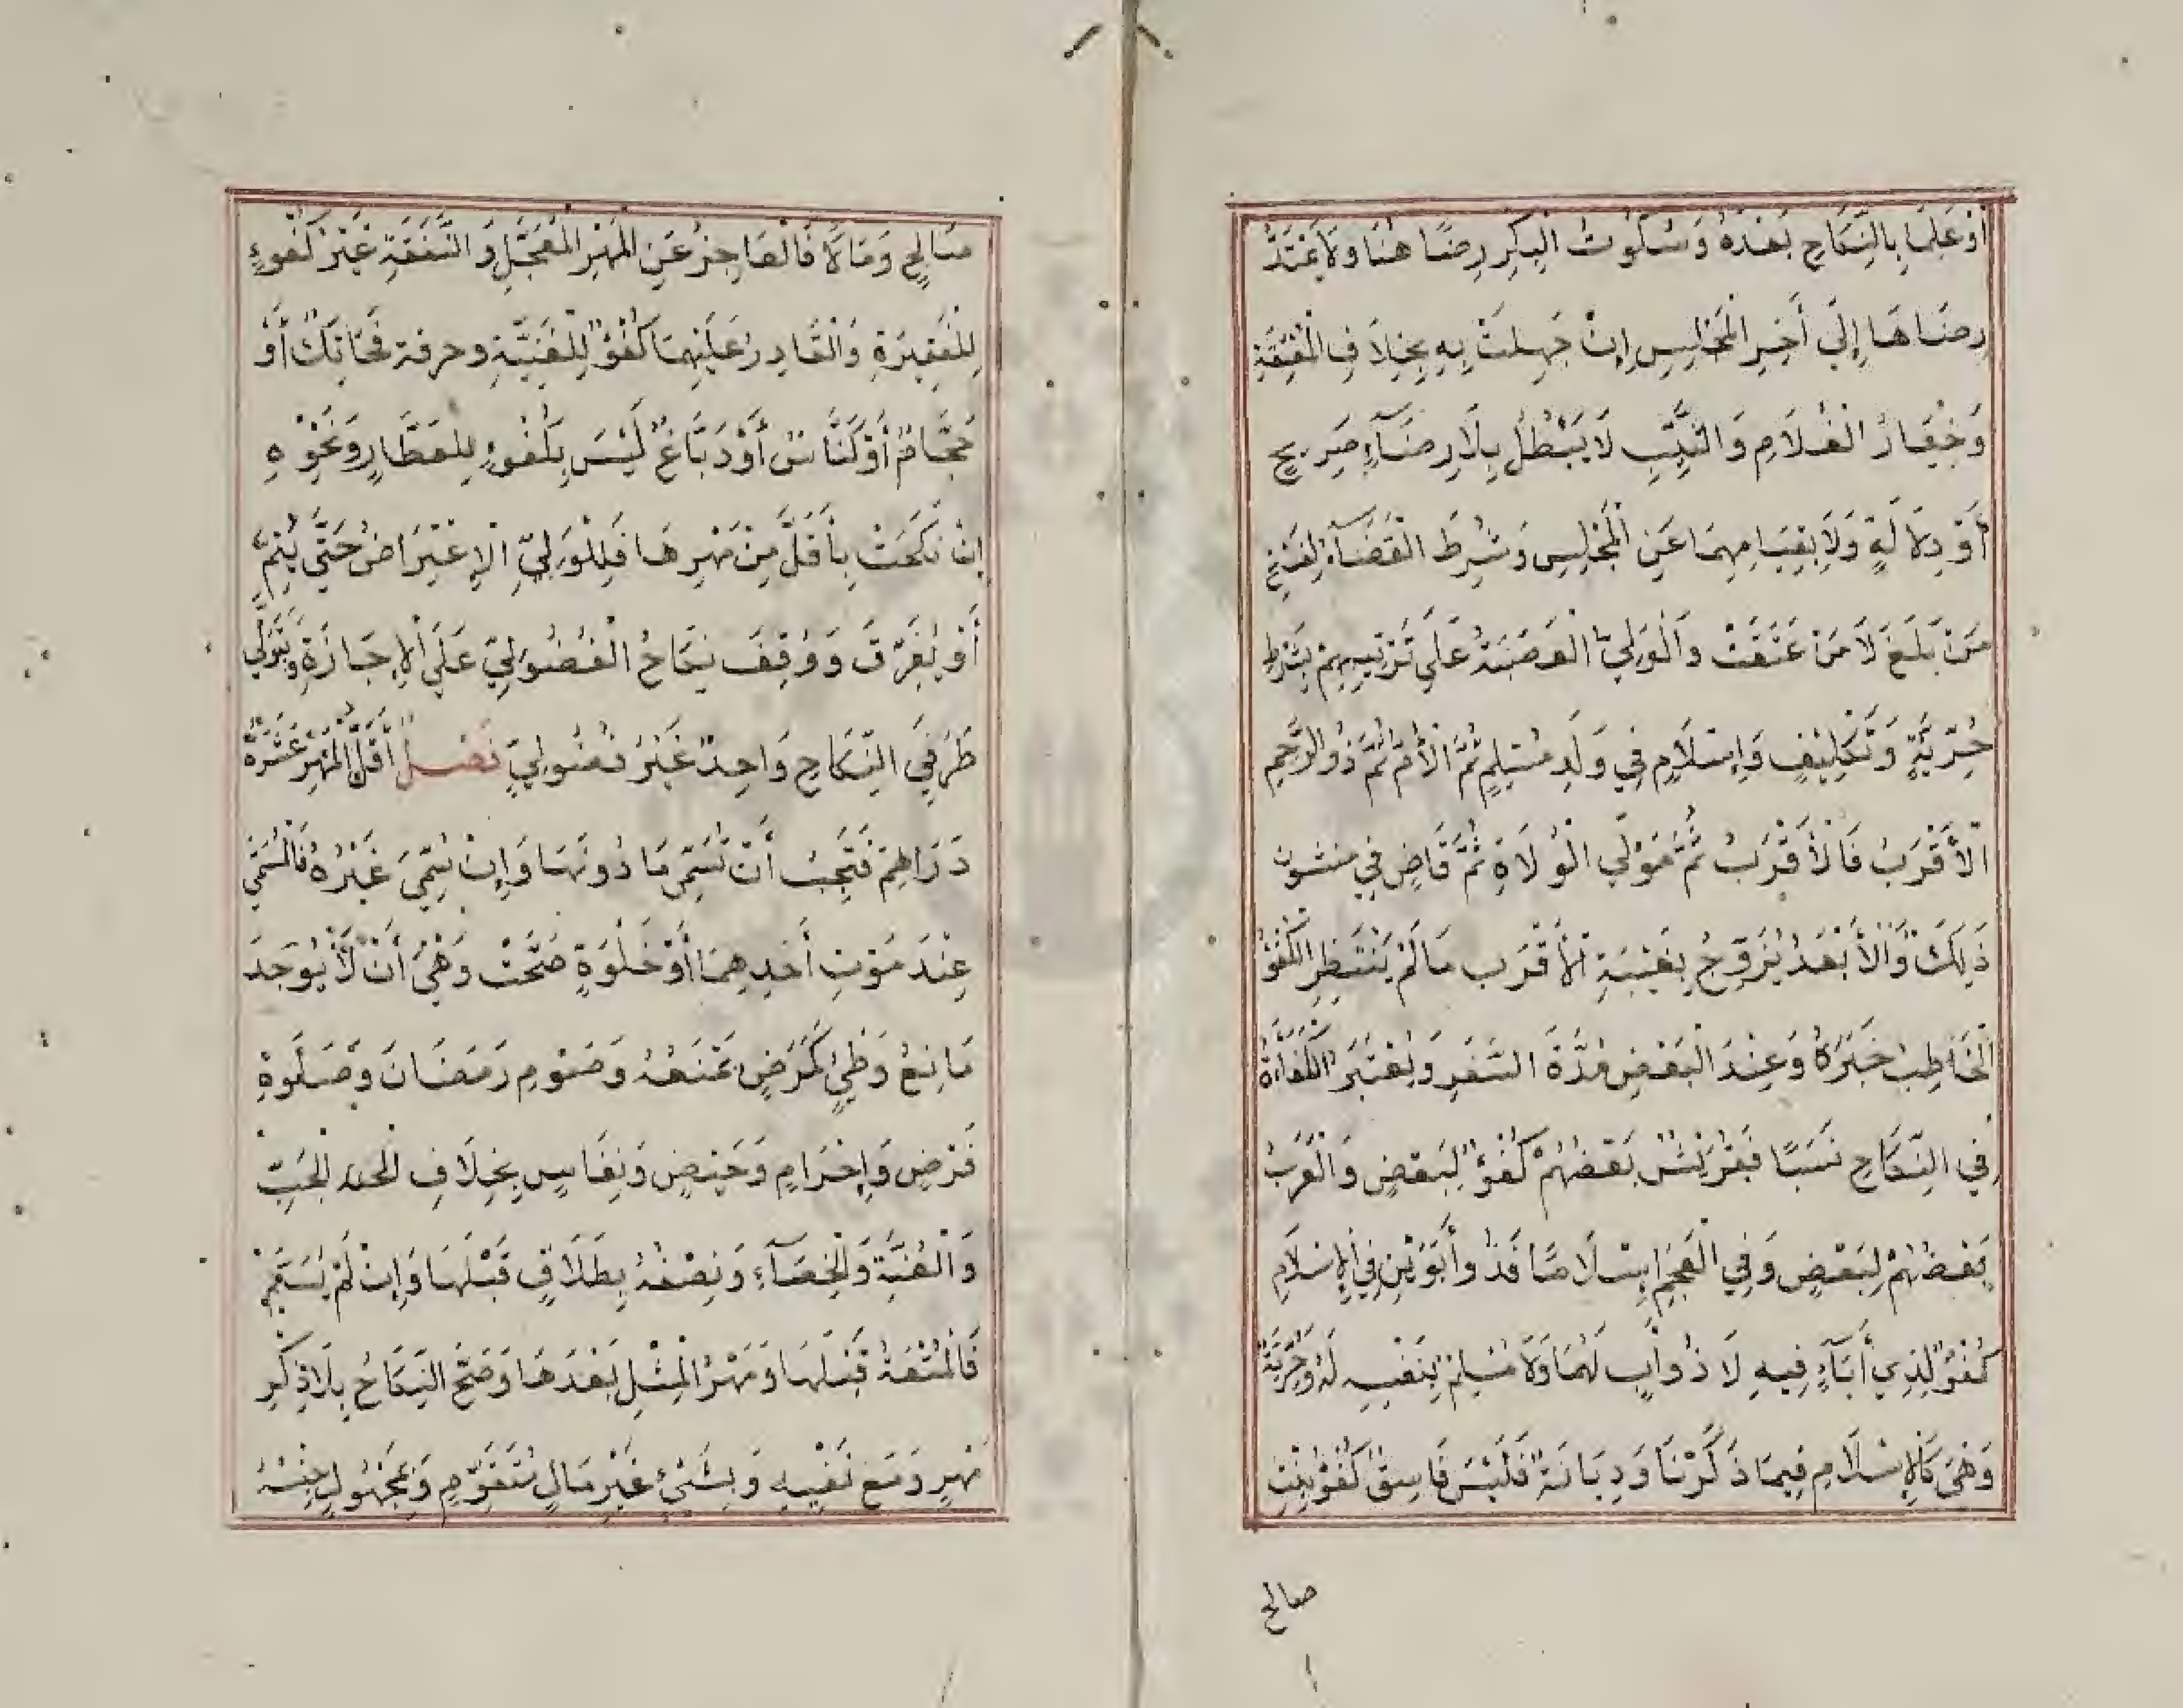 أَوْ عَلِمَا بِالنِّكَاحِ بَعْدَهُ وَسُكُوتُ الْبِكْرِ رِضًا هُنَا وَلَا يَمْتَدُّ
رِضَاهَا إِلَى أَخِرِ الْمَجْلِسِ إِنْ جَهِلَتْ بِهِ بِخِلَافِ الْمُعْتَقَةِ
وَخِيَارُ الْغُلَامِ وَالثَّيِّبِ لَا يَبْطُلُ بِلَا رِضَآءٍ صَرِيحٍ
أَوْ دِلَالَةٍ وَلَا بِقِيَامِهِمَا عَنِ الْمَجْلِسِ وَشُرِطَ الْقَضَآءُ لِفَسْخِ
مَنْ بَلَغَ لَا مَنْ عَتَقَتْ وَالْوَلِيُّ الْعَصَبَةُ عَلَى تَرْتِيبِهِمْ بِشَرْطِ
حُرِّيَّةٍ وَتَكْلِيفٍ وَإِسْلَامٍ فِي وَلَدٍ مُسْلِمٍ ثُمَّ الْأُمُّ ثُمَّ ذُو الرَّحِمِ
الْأَقْرَبُ فَالْأَقْرَبُ ثُمَّ مَوْلَى الْوُلَاةِ ثُمَّ قَاضٍ فِي منشون
ذَلِكَ وَالْأَبْعَدُ يُزَوِّجُ بِغَيْبَةِ الْأَقْرَبِ مَا لَمْ يَنْتَظِرِ الْكُفْوُ
الْخَاطِبُ خَبَرَهُ وَعِنْدَ الْبَعْضِ مُدَّةَ السَّفَرِ وَيُعْتَبَرُ الْكَفَاءَةُ
فِي النِّكَاحِ نَسَبًا فَقُرَيْشٌ بَعْضُهُمْ كُفْوٌ لِبَعْضٍ وَالْعَرَبُ
بَعْضُهُمْ لِبَعْضٍ وَفِي الْعَجَمِ إِسْلَامًا فَذُو أَبَوَيْنِ فِي الْإِسْلَامِ
كُفْوٌ لِذِي أَبَآءٍ فِيهِ لَا ذُو أَبٍ لَهُمَا وَلَا مُسْلِمٌ بِنَفْسِهِ لَهُ وَحُرِّيَّةً
وَهِيَ كَالْإِسْلَامِ فِيمَا ذَكَرْنَا وَدِيَانَةً فَلَيْسَ فَاسِقٌ كُفْوَ بِنْتِ
صالح
صَالِحٍ وَمَالًا فَالْعَاجِزُ عَنِ الْمَهْرِ الْمُعَجَّلِ وَالنَّفَقَةِ غَيْرُ كُفُوءٍ
لِلْفَقِيرَةِ وَالْقَادِرُ عَلَيْهِمَا كُفْوٌ لِلْغَنِيَّةِ وحرفة فَحَائِكٌ أَوْ
حَجَّامٌ أَوْ كَنَّاسٌ أَوْ دَبَّاغٌ لَيْسَ بِكُفُوءٍ لِلْعَطَّارِ وَنَحْوِهِ
إِنْ نَكَحَتْ بِأَقَلَّ مِنْ مَهْرِهَا فَلِلْوَلِيِّ الْإِعْتِرَاضُ حَتَّى يُتِمَّ
أَوْ يُفَرِّقَ وَوُقِفَ نِكَاحُ الْفُضُولِيِّ عَلَى الْإِجَازَةِ وَيَتَوَلَّى
طَرَفَيِ النِّكَاحِ وَاحِدٌ غَيْرُ فُضُولِيٍّ فَصْلٌ أَقَلُّ الْمَهْرِ عَشَرَةُ
دَرَاهِمَ فَتَجِبُ أَنْ تُسَمِّى مَا دُونَهَا وَإِنْ سُمِّيَ غَيْرُهُ فَالْمُسَمَّى
عِنْدَ مَوْتِ أَحَدِهِمَا أَوْ خَلْوَةٍ صَحَّتْ وَهِيَ أَنْ لَا يُوجَدَ
مَانِعُ وَطْيٍ كَمَرَضٍ يَمْنَعُهُ وَصَوْمِ رَمَضَانَ وَصَلَوةِ
فَرْضٍ وَإِحْرَامٍ وَحَيْضٍ وَنِفَاسٍ بِخِلَافِ الْجَبِّ
وَالْعُنَّةِ وَالْخِصَآءِ وَنِصْفُهُ بِطَلَاقٍ قَبْلَهَا وَإِنْ لَمْ يُسَمِّ
فَالْمُتْعَةُ قَبْلَهَا وَمَهْرُ الْمِثْلِ بَعْدَهَا وَصَحَّ النِّكَاحُ بِلَا ذِكْرِ
مَهْرٍ وَمَعَ نَفْيِهِ وَبِشَيْءٍ غَيْرِ مَالٍ مُتَقَوِّمٍ وَبِمَجْهُولٍ جِنْسُهُ